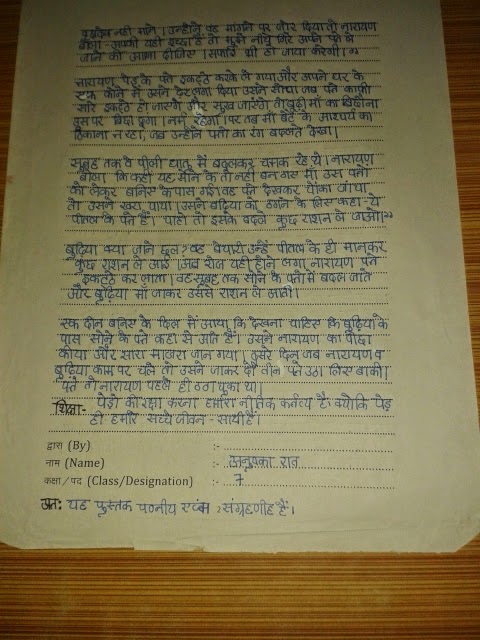 वृक्षदेव नहीं माने। उन्होंने वर मांगने पर जोर दिया तो नारायण
बोला - आपकी यही इच्छा है तो मुझे नीचे गिरे आपने पते ले
जाने की आज्ञा दीजिए। सफाई भी हो जाया करेगी।"
नारायण पेड़ के पते इकट्ठे करके ले गया और अपने घर के
एक कोने में उसने ढेर लगा दिया उसने सोचा जब पते काफी
सारे इकट्ठे हो जाएंगे और सुख जाएंगे तो बूढ़ी माँ का बिछौना
इस पर बिछा दूंगा। नर्म रहेगा। पर तब माँ बेटे के आश्चर्य का
ठिकाना न रहा, जब उन्होंने पतों का रंग बदलते देखा।
सुबह तक वे पीली धातु में बदलकर चमक रहे थे। नारायण
बोला कि कहीं यह सोने के तो नहीं बन गए माँ उस पतों
को लेकर बनिए के पास गई। वह पते देखकर चौंका जांचा
तो उसने खरा पाया। उसने बुढ़िया को ठगने के लिए कहा - ये
पीतल के पते हैं। चाहो तो इसके बदले कुछ राशन ले जाओ।"
बुढ़िया क्या जाने छल? वह बेचारी उन्हें पीतल के ही मानकर
कुछ राशन ले आई। अब रोज यही होने लगा। नारायण पते
इकट्ठे कर लाता। वह सुबह तक सोने के पतों में बदल जाते
और बुढ़िया माँ जाकर उससे राशन ले आती।
एक दीन बनिए के दिल में आया कि देखना चाहिए कि बुढ़िया के
पास सोने के पते कहां से आते हैं। उसने नारायण का पीछा
कीया और सारा माजरा जान गया। दुसरे दिन जब नारायण व
बुढ़िया काम पर चले तो उसने जाकर दो तीन पते उठा लिए बाकी
पते तो नारायण पहले ही उठा चुका था।
शिक्षा:- पेड़ो की रक्षा करना हमारा नैतिक कर्तव्य है। क्योंकि पेड़
ही हमारे सच्चे जीवन - साथी हैं।
द्वारा (By) :-
नाम (Name) :- अनुष्का रात
कक्षा / पद (Class/Designation) :- 7
अत: यह पुस्तक पठनीय एवंम संग्रहणीह हैं।